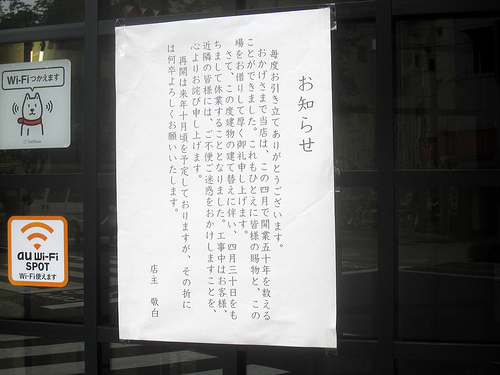 お知らせ
毎度お引き立てありがとうございます。
おかげさまで当店は、この四月で開業五十年を数える
ことができました。これもひとえに皆様の賜物と、この
場をお借りして厚く御礼申し上げます。
さて、この度建物の建て替えに伴い、四月三十日をも
ちまして休業することとなりました。工事中はお客様、
近隣の皆様には、ご不便ご迷惑をおかけしますことを、
心よりお詫び申し上げます。
再開は来年十月頃を予定しておりますが、その折に
は何卒よろしくお願いいたします。
店主 敬白
Wi-Fiつかえます
SoftBank
au Wi-Fi
SPOT
Wi-Fi使えます